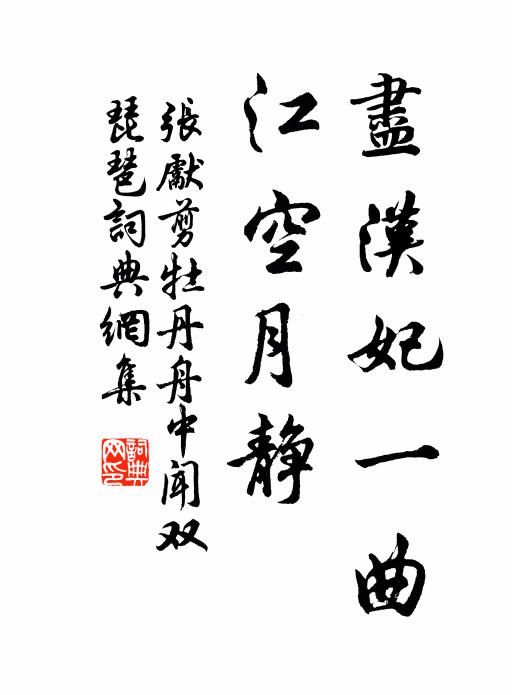 盡漢妃一曲
江空月静
張獻剪牡丹舟中聞双
琵琶詞典網集
詞典
网印